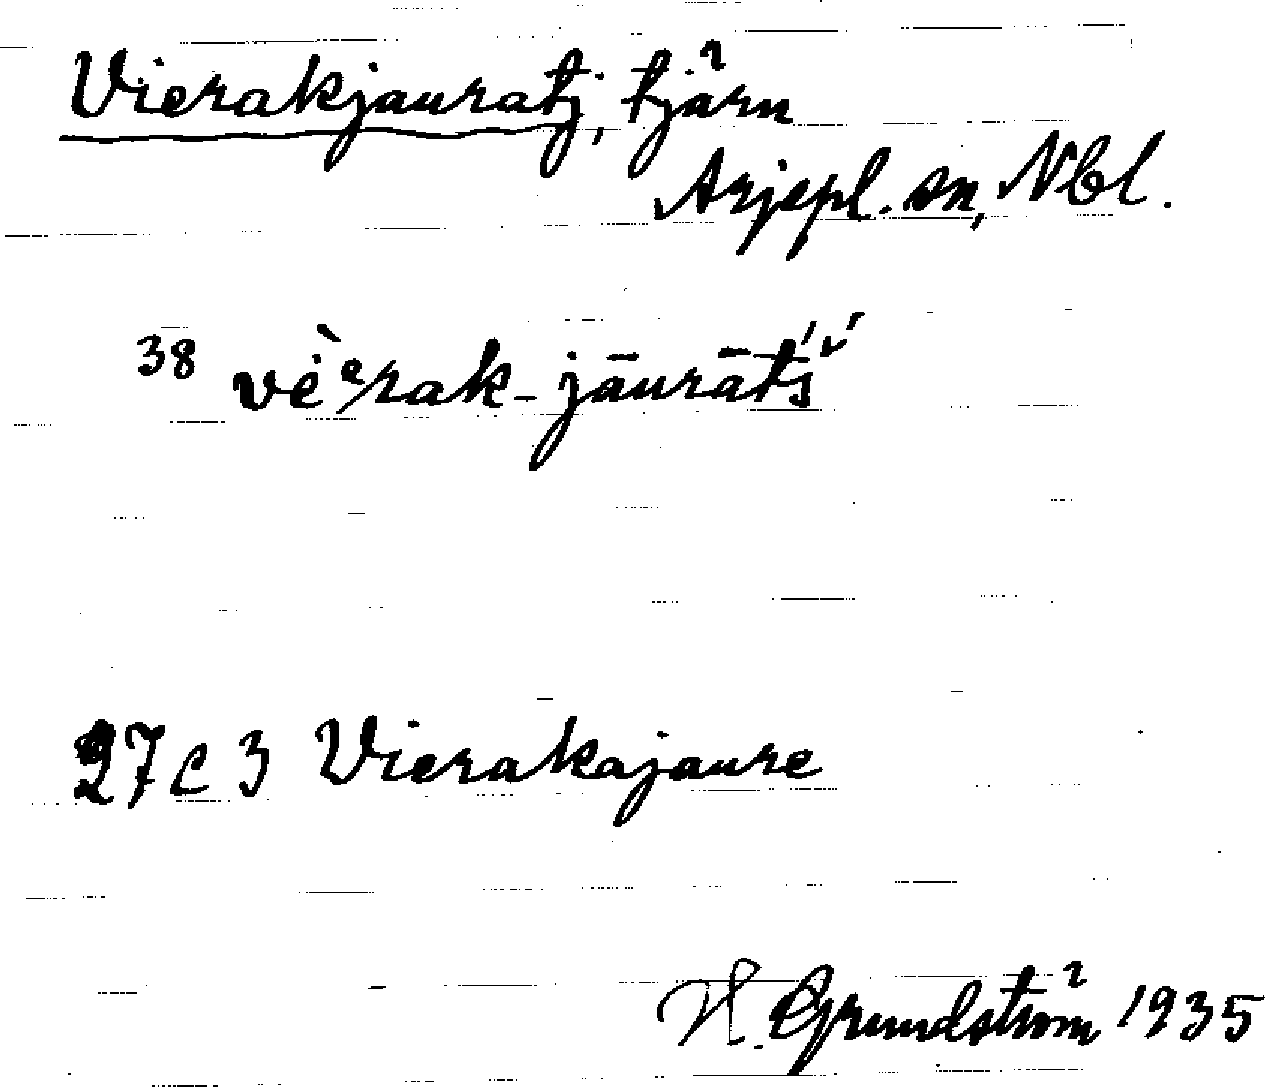 Vierakjauratj, tjärn
Arjepl. sn, Nbl.
38 vèᵉrak-jāurātś́
27 C 3 Vierakajaure
H. Grundström 1935